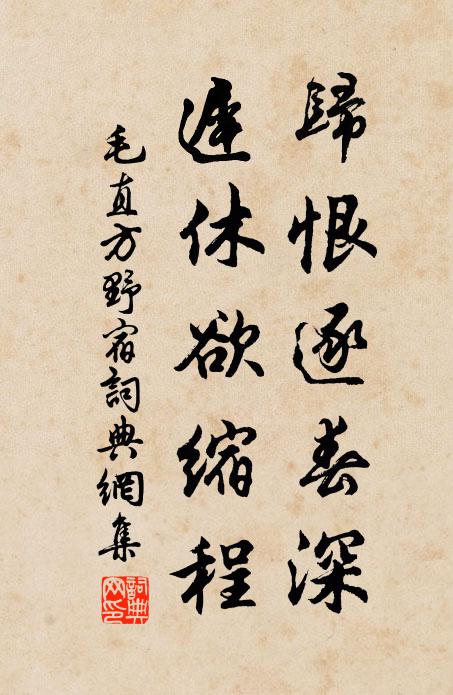 歸恨逐春深
遲休欲縮程
毛直方野宿詞典網集
詞典網印